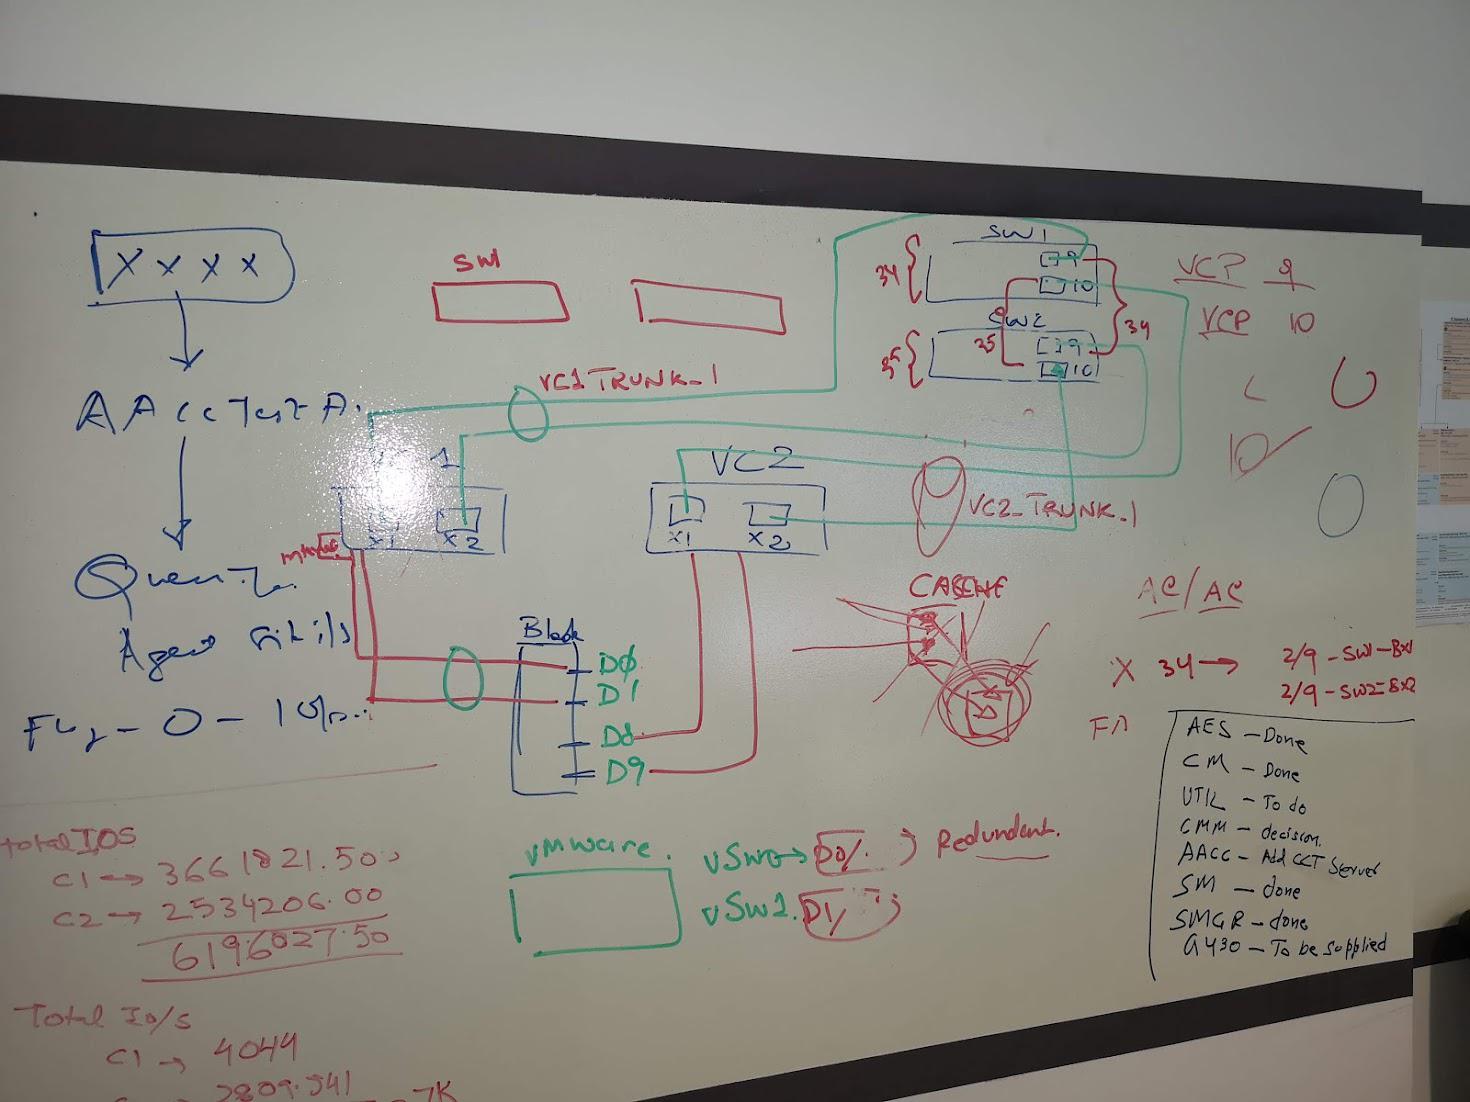 X x x x
SW1
SW1
9
10
34
SW2
9
10
35
35
34
VCP 9
VCP 10
VC1 TRUNK_1
1
x1
x2
VC2
x1
x2
VC2_TRUNK_1
10
Agent
Blade
DØ
D1
D8
D9
AC/AC
X 34 → 2/9 - SW1 - BX1
2/9 - SW2 = BX2
AES - Done
CM - Done
UTIL - To do
CMM - decision.
AACC - Add CCT Server
SM - done
SMGR - done
G430 - To be supplied
vMware.
vSW0 → D0/. ) Redundent.
vSW1. D1/
total IOS
C1 → 3661821.50
C2 → 2534206.00
6196027.50
Total Io/s
C1 → 4044
2809.541
7K